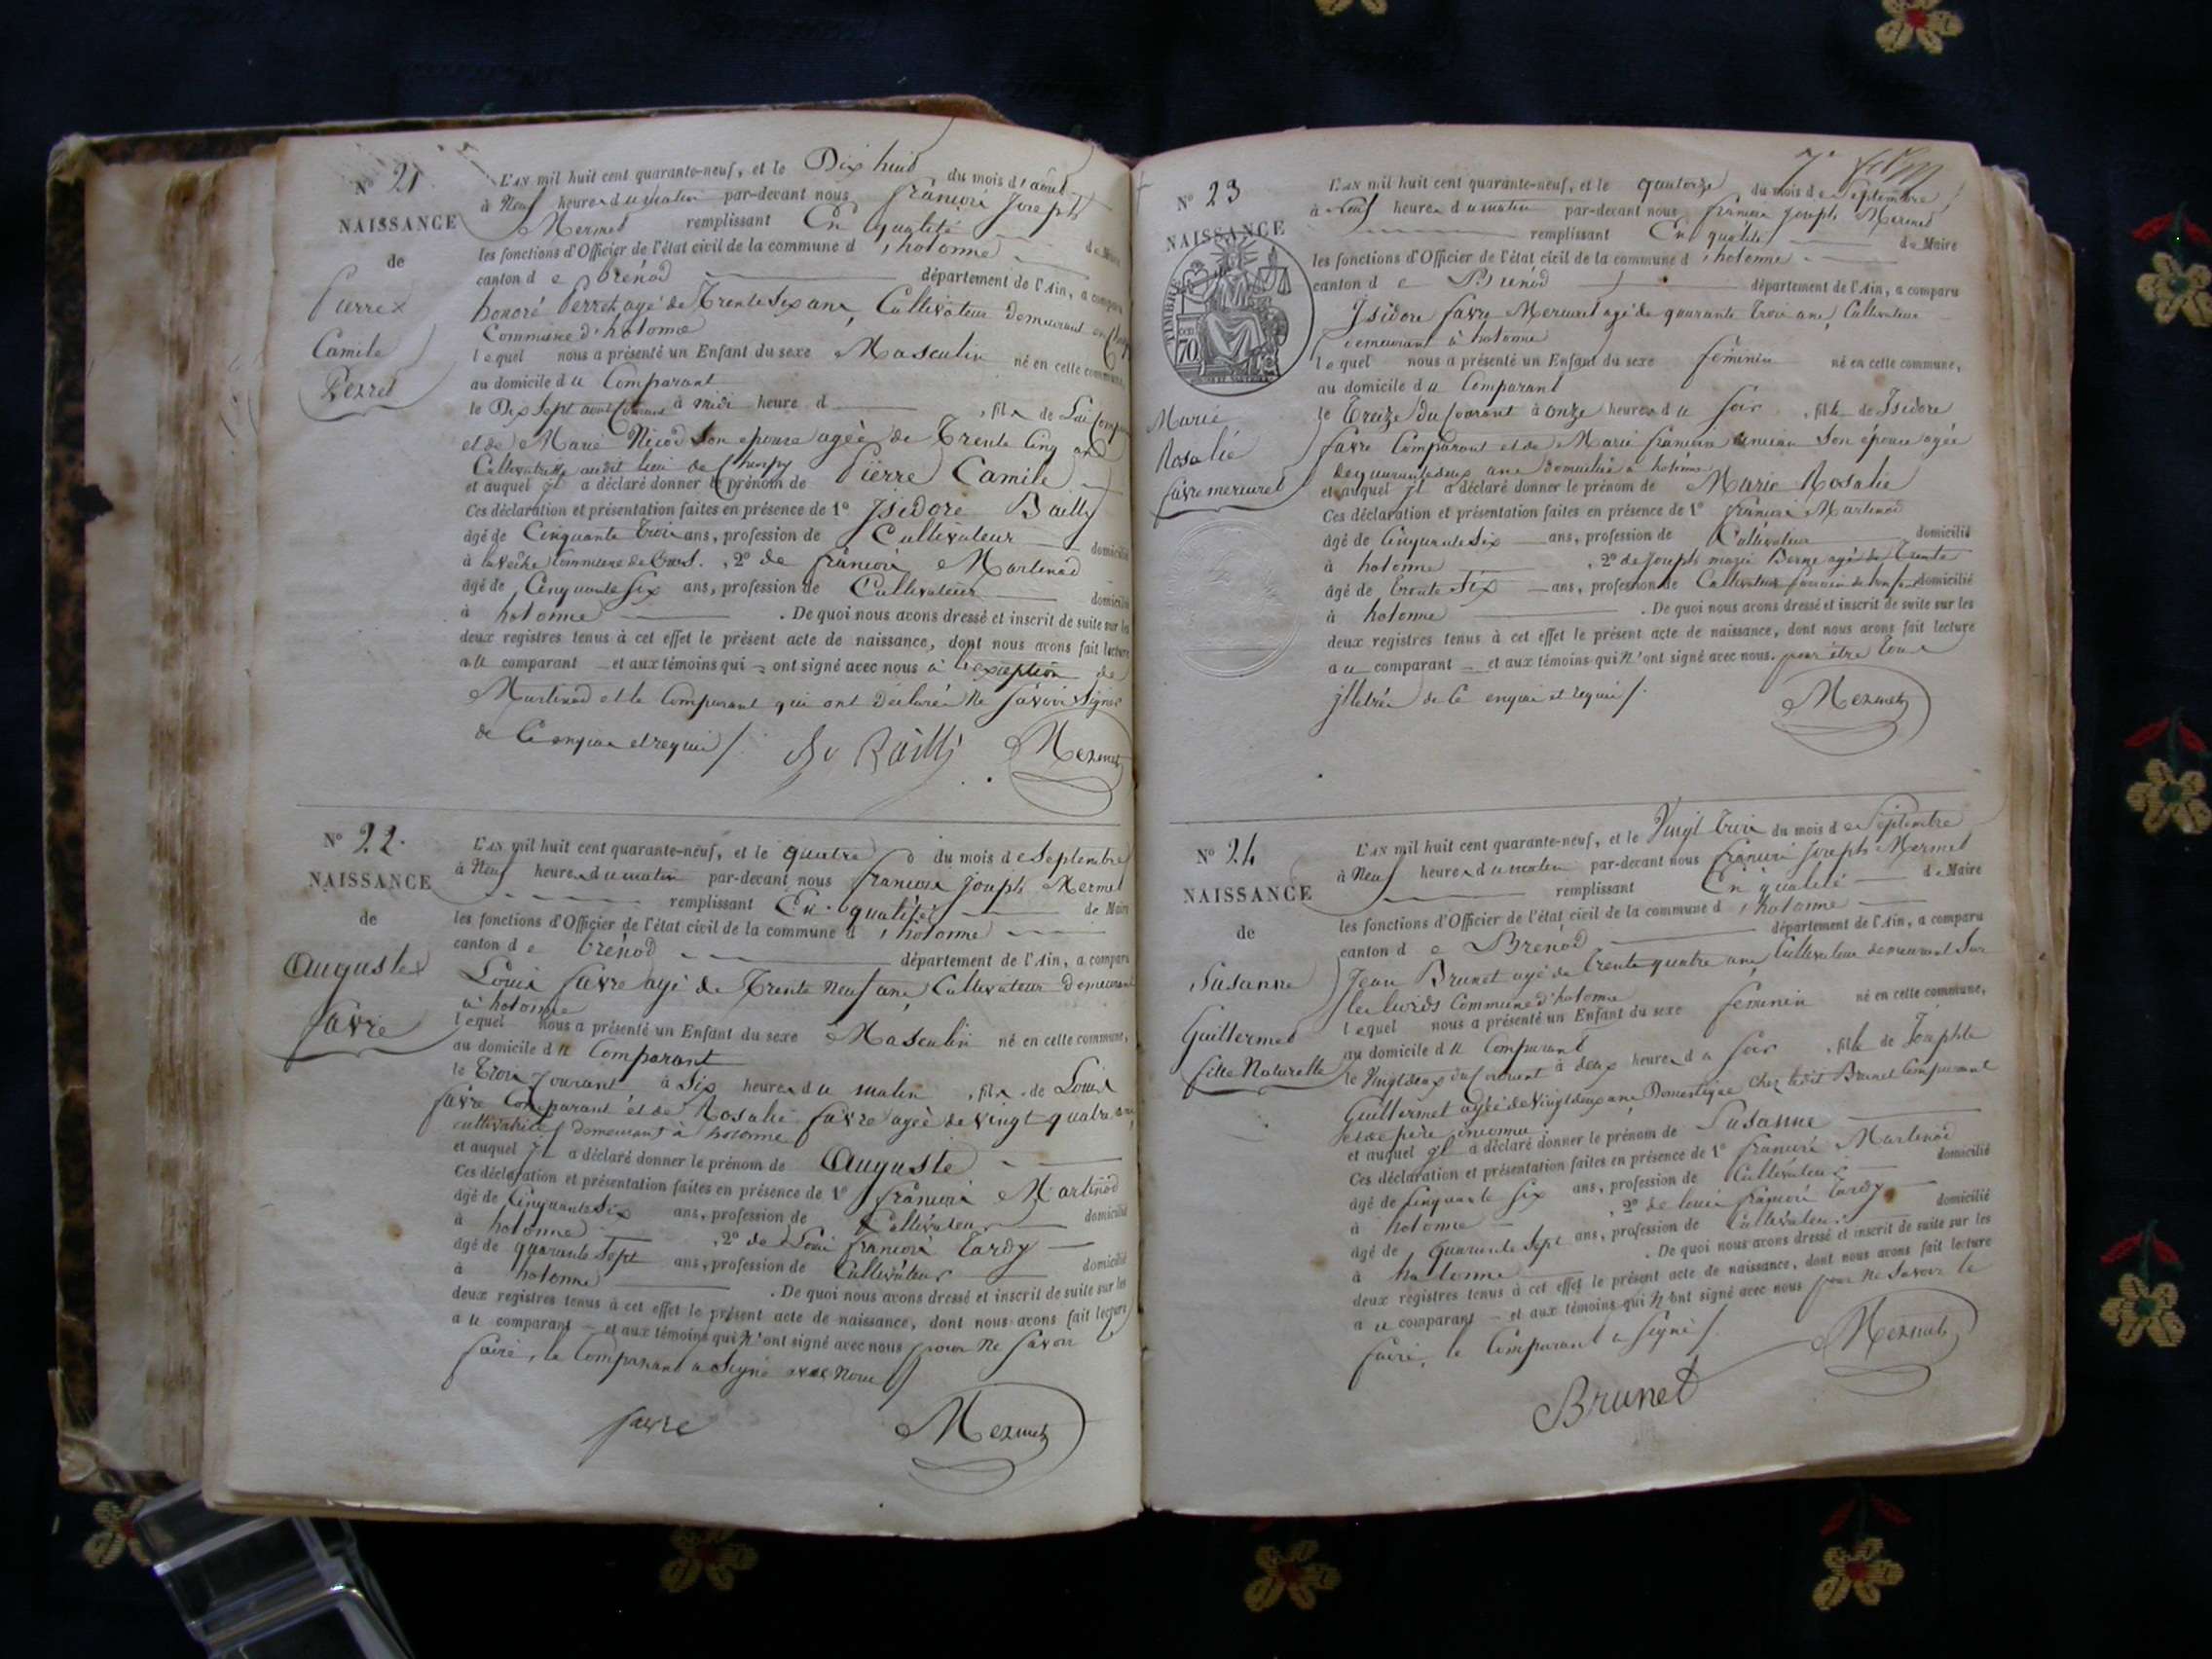 N° 21
NAISSANCE
de
Pierre
Camile
Perret
L'AN mil huit cent quarante-neuf, et le Dix huit du mois d'août
à Neuf heures du matin par-devant nous françois Joseph
Mermet remplissant En qualité de Maire
les fonctions d'Officier de l'état civil de la commune d'hotonne
canton de brénod département de l'Ain, a comparu
honoré Perret agé de Trente six ans, Cultivateur demeurant
Commune d'hotonne
lequel nous a présenté un Enfant du sexe Masculin né en cette commune,
au domicile du Comparant
le Dix sept août courant à midi heure d , fils de Lui Comparant
et de Marie Nicod Son epouse agée de Trente Cinq ans
Cultivatrice audit lieu de
et auquel jl a déclaré donner le prénom de Pierre Camile
Ces déclaration et présentation faites en présence de 1° Jsidore Bailly
âgé de Cinquante trois ans, profession de Cultivateur domicilié
à Commune de , 2° de françois Martinod
âgé de Cinquante six ans, profession de Cultivateur domicilié
à hotonne . De quoi nous avons dressé et inscrit de suite sur les
deux registres tenus à cet effet le présent acte de naissance, dont nous avons fait lecture
au comparant et aux témoins qui ont signé avec nous à l'exception de
Martinod et le Comparant qui ont declaré ne Savoir Signer
de Ce enquis et requis /.
Mermet
N° 22.
NAISSANCE
de
Auguste
favre
L'AN mil huit cent quarante-neuf, et le quatre du mois de Septembre
à Neuf heures du matin par-devant nous françois Joseph Mermet
remplissant En qualité de Maire
les fonctions d'Officier de l'état civil de la commune d'hotonne
canton de brénod département de l'Ain, a comparu
Louis favre agé de Trente neuf ans Cultivateur demeurant
à hotonne
lequel nous a présenté un Enfant du sexe Masculin né en cette commune,
au domicile du Comparant
le trois Courant à Six heures du matin , fils de Louis
favre Comparant et de Rosalie favre agée de vingt quatre ans
cultivatrice demeurant à hotonne
et auquel jl a déclaré donner le prénom de Auguste
Ces déclaration et présentation faites en présence de 1° françois Martinod
âgé de Cinquante Six ans, profession de Cultivateur domicilié
à hotonne , 2° de Louis françois tardy
âgé de quarante Sept ans, profession de Cultivateur domicilié
à hotonne . De quoi nous avons dressé et inscrit de suite sur les
deux registres tenus à cet effet le présent acte de naissance, dont nous avons fait lecture
au comparant et aux témoins qui n'ont signé avec nous pour ne Savoir
faire, le Comparant a Signé avec nous /
favre Mermet
N° 23
NAISSANCE
TIMBRE
70
Marie
Rosalie
favre mercuret
L'AN mil huit cent quarante-neuf, et le quatorze du mois de Septembre
à Neuf heures du matin par-devant nous françois Joseph Mermet
remplissant En qualité de Maire
les fonctions d'Officier de l'état civil de la commune d'hotonne
canton de Brénod département de l'Ain, a comparu
Jsidore favre Mercuret agé de quarante trois ans, Cultivateur
demeurant à hotonne
lequel nous a présenté un Enfant du sexe féminin né en cette commune,
au domicile du Comparant
le treize du Courant à onze heures du soir , fille de Isidore
favre Comparant et de Marie françoise Son épouse agée
de quarante deux ans domiciliée à hotonne
et auquel jl a déclaré donner le prénom de Marie Rosalie
Ces déclaration et présentation faites en présence de 1° françois Martinod
âgé de Cinquante six ans, profession de Cultivateur domicilié
à hotonne , 2° de Joseph marie agé de trente
âgé de trente Six ans, profession de Cultivateur domicilié
à hotonne . De quoi nous avons dressé et inscrit de suite sur les
deux registres tenus à cet effet le présent acte de naissance, dont nous avons fait lecture
au comparant et aux témoins qui n'ont signé avec nous. pour être tous
jlletrés de Ce enquis et requis /.
Mermet
N° 24
NAISSANCE
de
Susanne
Guillermet
fille Naturelle
L'AN mil huit cent quarante-neuf, et le Vingt trois du mois de Septembre
à Neuf heures du matin par-devant nous françois Joseph Mermet
remplissant En qualité de Maire
les fonctions d'Officier de l'état civil de la commune d'hotonne
canton de Brenod département de l'Ain, a comparu
Jean Brunet agé de trente quatre ans, Cultivateur demeurant Sur
les Commune d'hotonne
lequel nous a présenté un Enfant du sexe féminin né en cette commune,
au domicile du Comparant
le Vingt deux du Courant à deux heures du soir , fille de Josephte
Guillermet agée de Vingt deux ans, Domestique chez ledit Brunet Comparant
et de père inconnu
et auquel jl a déclaré donner le prénom de Susanne
Ces déclaration et présentation faites en présence de 1° françois Martinod
âgé de Cinquante Six ans, profession de Cultivateur domicilié
à hotonne , 2° de louis françois tardy
âgé de quarante Sept ans, profession de Cultivateur domicilié
à hotonne . De quoi nous avons dressé et inscrit de suite sur les
deux registres tenus à cet effet le présent acte de naissance, dont nous avons fait lecture
au comparant et aux témoins qui n'ont signé avec nous pour ne Savoir le
faire, le Comparant a Signé /
Brunet Mermet